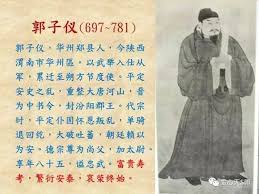 郭子仪(697~781)
郭子仪，华州郑县人，今陕西
渭南市华州区。以武举入仕从
军，累迁至朔方节度使。平定
安史之乱，重整大唐河山，晋
为中书令，封汾阳郡王。代宗
时，平定仆固怀恩叛乱，单骑
退回纥，大破吐蕃，朝廷赖以
为安。德宗尊为尚父，加太尉，
享年八十五，谥忠武。富贵寿
考，繁衍安泰，哀荣终始。